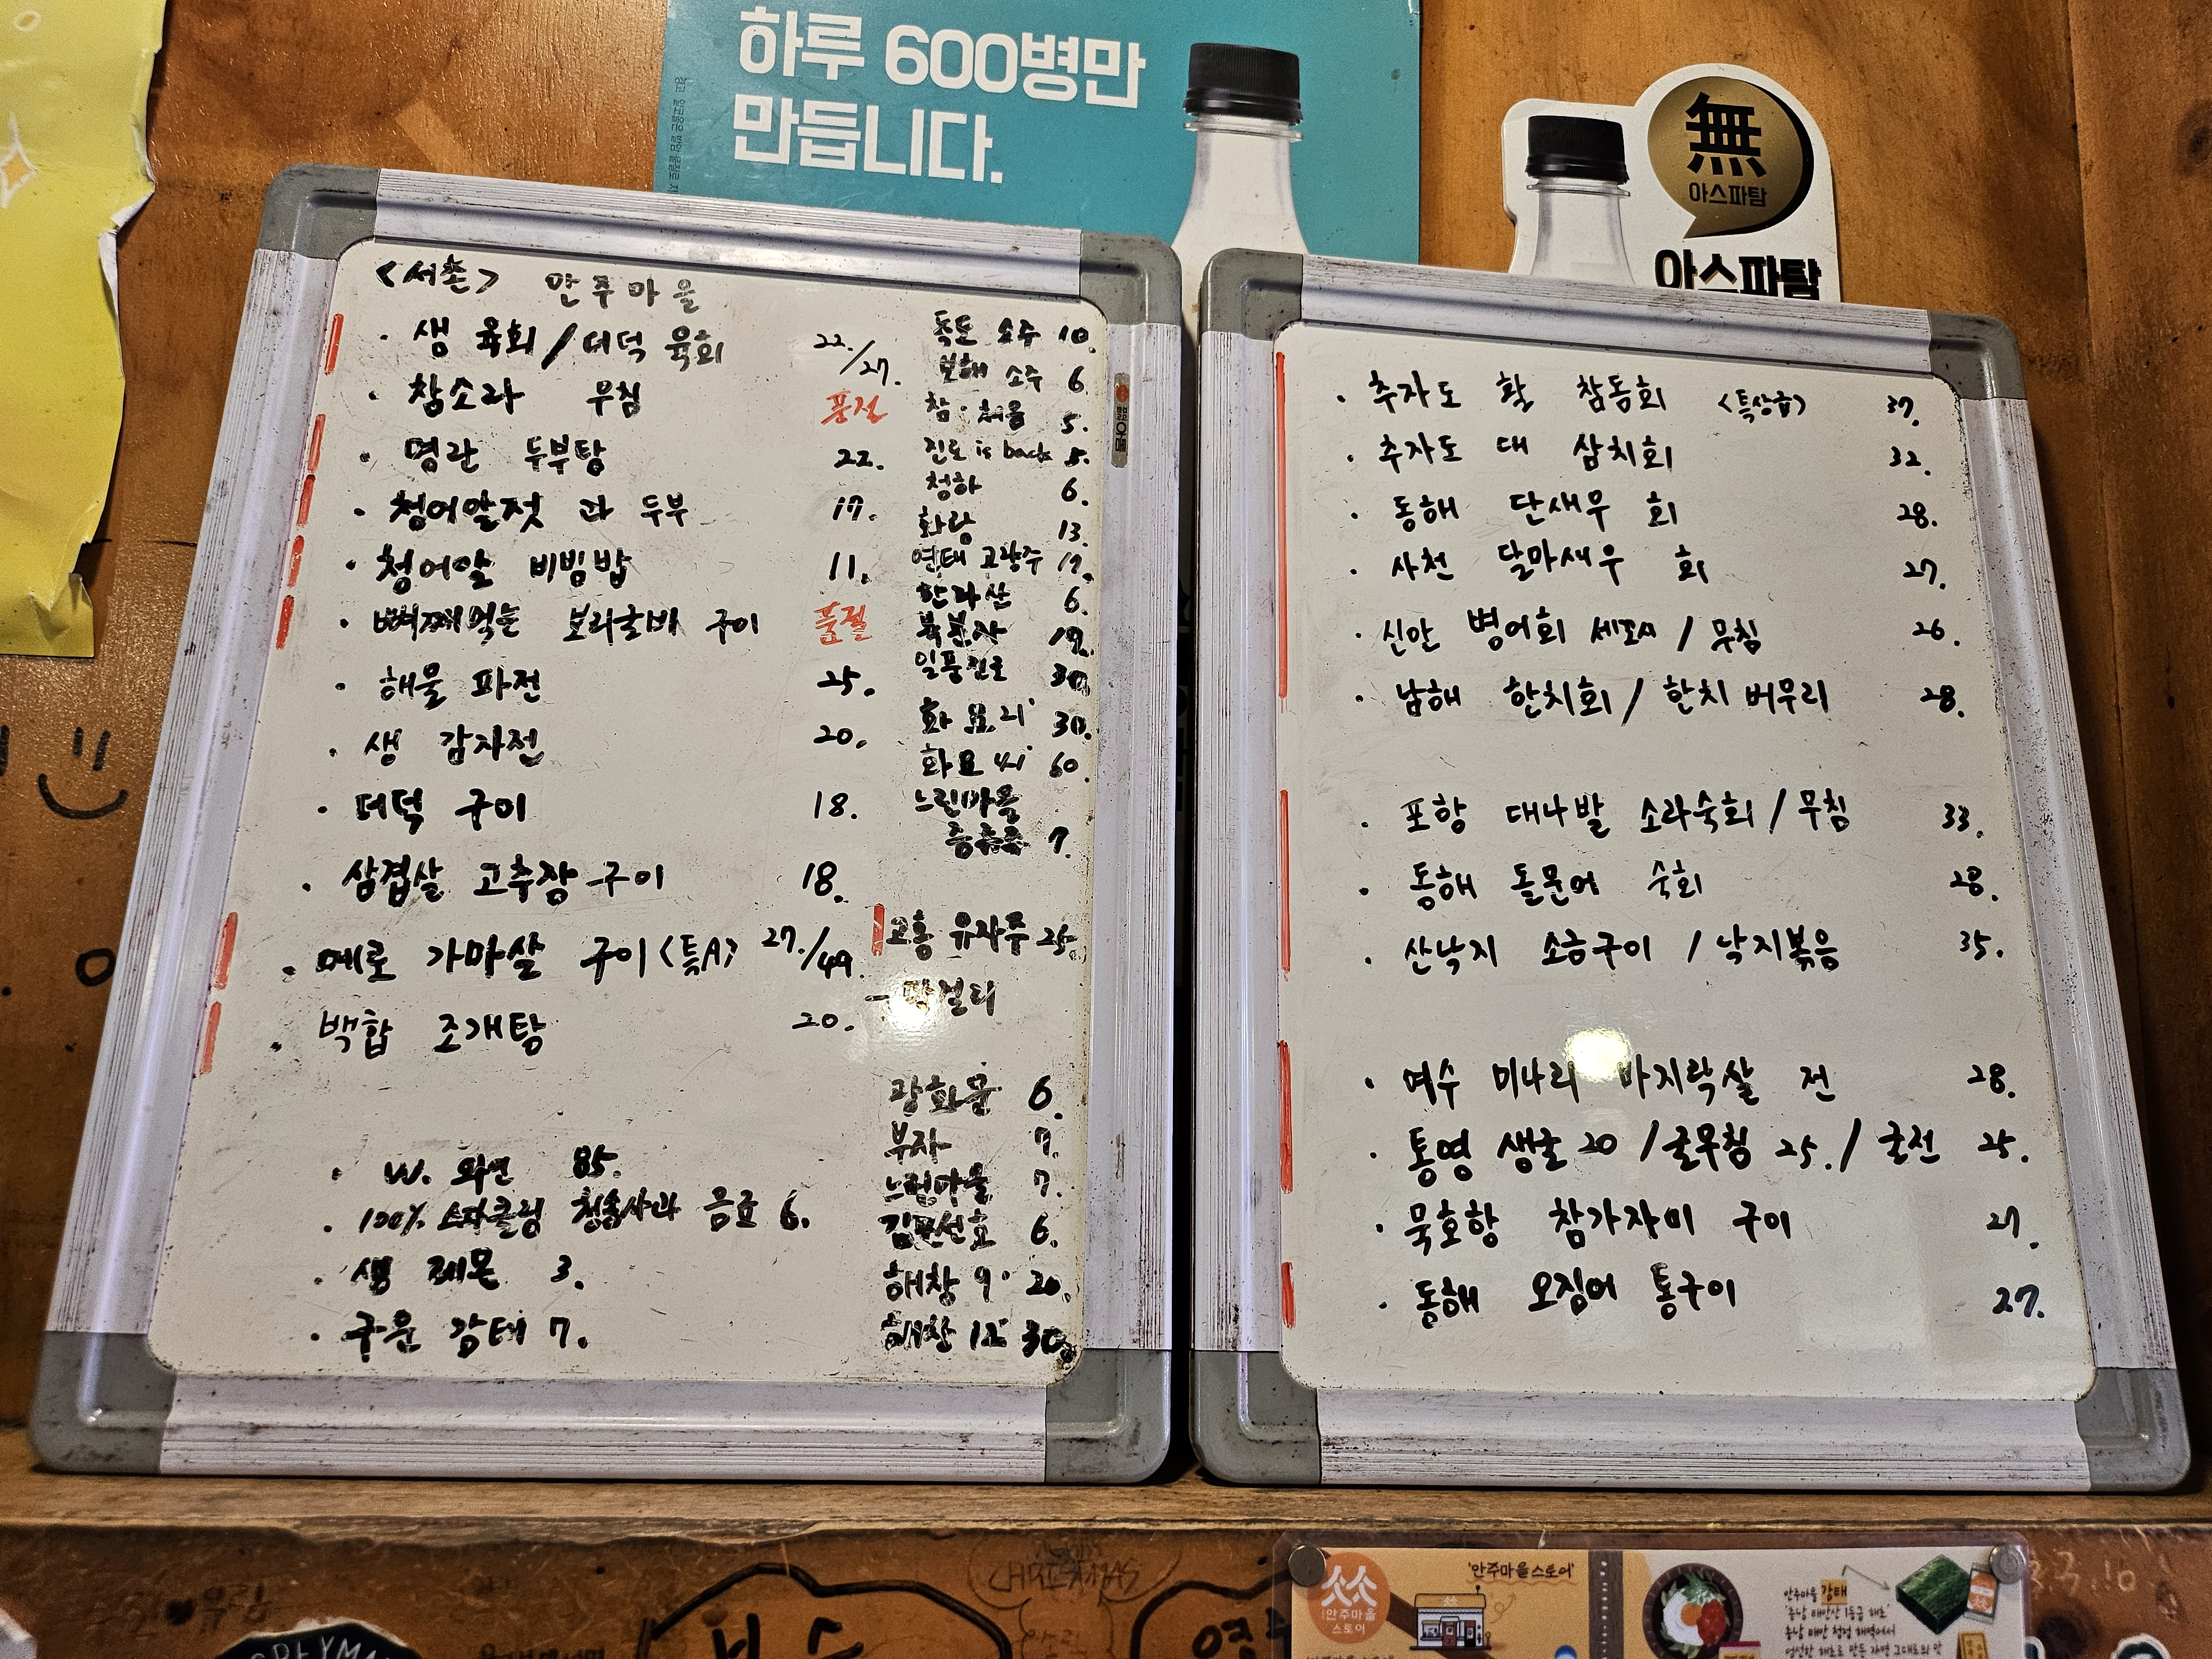 하루 600병만
만듭니다.
無
아스파탐
아스파탐
<서촌> 안주마을
· 생 육회/더덕 육회 22./27.
· 참소라 무침 품절
· 명란 두부탕 22.
· 청어알젓 과 두부 17.
· 청어알 비빔밥 11.
· 뼈째먹는 보리굴비 구이 품절
· 해물 파전 25.
· 생 감자전 20.
· 더덕 구이 18.
· 삼겹살 고추장 구이 18.
· 메로 가마살 구이 <특A> 27./49.
· 백합 조개탕 20.
· W. 와인 85.
· 100% 스파클링 청송사과 음료 6.
· 생 레몬 3.
· 구운 감태 7.
독도 소주 10.
보해 소주 6.
참·처음 5.
진로 is back 5.
청하 6.
화랑 13.
연태 고량주 17.
한라산 6.
복분자 19.
일품진로 30.
화요 21° 30.
화요 41° 60.
느린마을
증류주 7.
고흥 유자주 25.
- 막걸리
광화문 6.
부자 7.
느린마을 7.
김포선호 6.
해창 9° 20.
해창 12° 30.
· 추자도 활 참돔회 <특상급> 37.
· 추자도 대 삼치회 32.
· 동해 단새우 회 28.
· 사천 달마새우 회 27.
· 신안 병어회 세꼬시 / 무침 26.
· 남해 한치회 / 한치 버무리 28.
· 포항 대나발 소라숙회 / 무침 33.
· 동해 돌문어 숙회 28.
· 산낙지 소금구이 / 낙지볶음 35.
· 여수 미나리 바지락살 전 28.
· 통영 생굴 20 / 굴무침 25. / 굴전 25.
· 묵호항 참가자미 구이 27.
· 동해 오징어 통구이 27.
'안주마을스토어'
안주마을
스토어
안주마을 감태